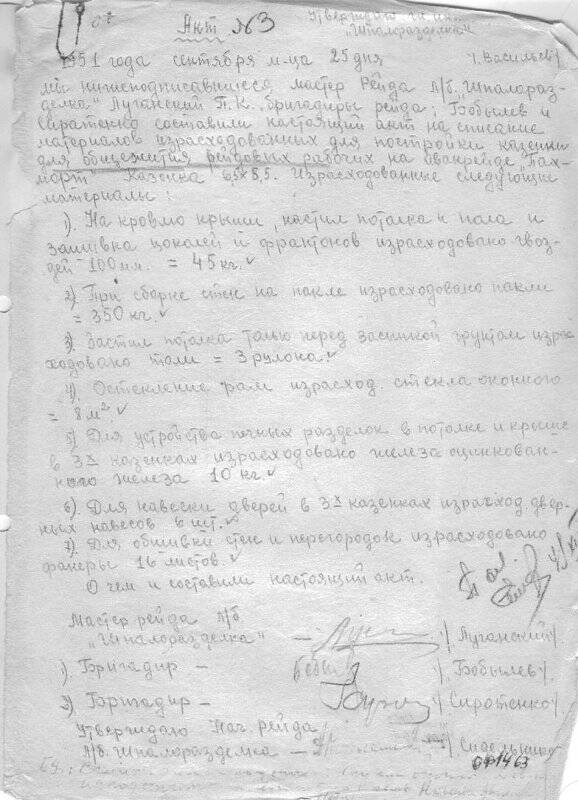 Акт №3
Утверждаю
"Шпалоразделка"
/.Васильев/
1951 года сентября м-ца 25 дня
Мы нижеподписавшиеся мастер Рейда п/б "Шпалораз-
делка" Луганский П.К. бригадиры рейда: Бобылев и
Сиротенко составили настоящий акт на списание
материалов израсходованных для постройки казенки
для общежития рейдовых рабочих на аванрейде
казенка 6,5х8,5. Израсходованные следующие
материалы:
1). На кровлю крыши, настил потолка и пола и
зашивка цокалей и франтонов израсходовано гвоз-
дей 100мл. = 45кг. ✓
2) При сборке стен на пакле израсходовано пакли
= 350 кг. ✓
3). Застил потолка толью перед засыпкой грунтом израс-
ходовано толи = 3 рулона. ✓
4). Остекление рам израсход. стекла оконного
= 8 м². ✓
5) Для устройства печных разделок в потолке и крыше
в 3х казенках израсходовано железа оцинкован-
ного железа 10 кг. ✓
6). Для навески дверей в 3х казенках израсход двер-
ных навесов 6 шт. ✓
7). Для обшивки стен и перегородок израсходовано
фанеры 16 листов. ✓
О чем и составили настоящий акт.
Мастер рейда п/б
"Шпалоразделка" — /Луганский/
1). Бригадир — /Бобылев/
2) Бригадир — /Сиротенко/
Утверждаю Нач. рейда
п/б. Шпалоразделка —
ОФ1463